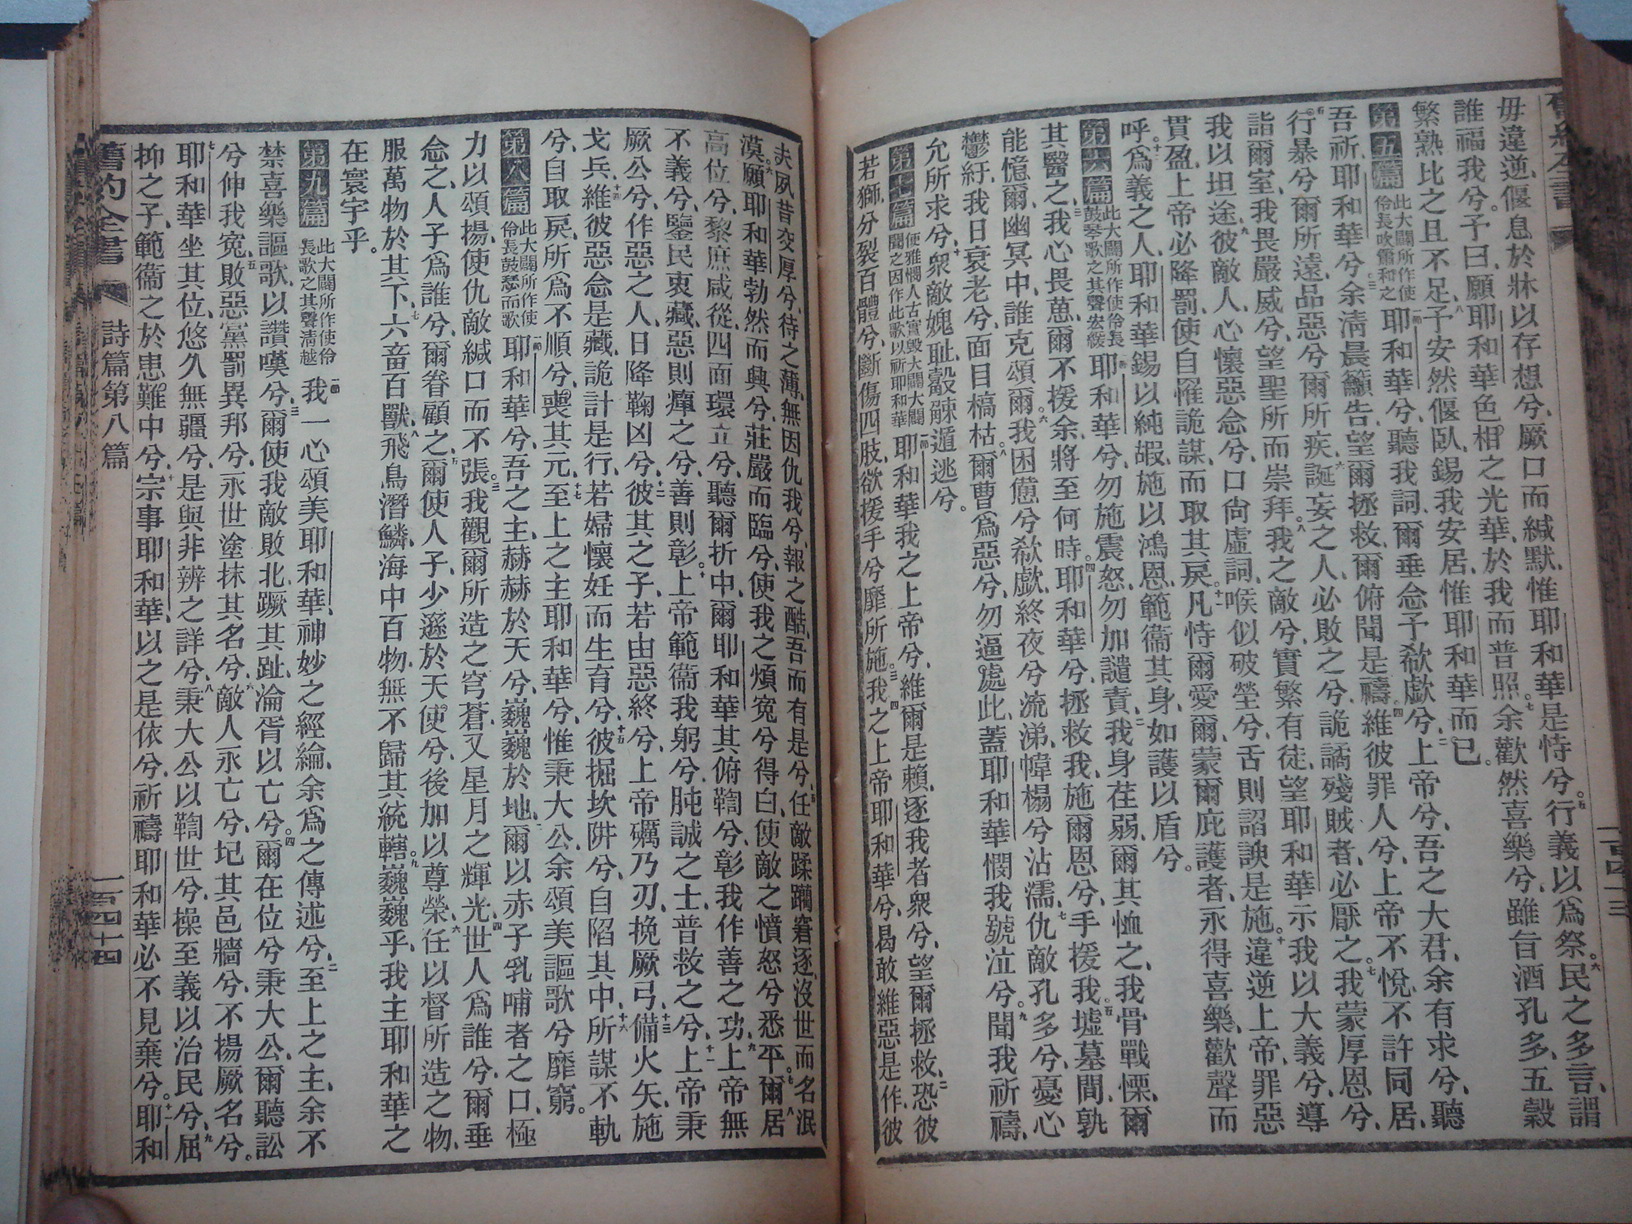 舊約全書
一百四十三
毋違逆、偃息於牀以存想兮、厥口而緘默、惟耶和華是恃兮。五行義以爲祭。六民之多言、謂
誰福我兮、予曰、願耶和華色相之光華、於我而普照。七余歡然喜樂兮、雖旨酒孔多、五穀
繁熟、比之且不足。八予安然偃臥、錫我安居、惟耶和華而已。
第五篇 此大闢所作使伶長吹籥和之 一節耶和華兮、聽我詞、爾垂念予欷歔兮。二上帝兮、吾之大君、余有求兮、聽
吾祈。三耶和華兮、余淸晨籲告、望爾拯救、爾俯聞是禱。四維彼罪人兮、上帝不悅、不許同居、
五行暴兮、爾所遠、品惡兮、爾所疾。六誕妄之人必敗之兮、詭譎殘賊者必厭之。七我蒙厚恩兮、
詣爾室、我畏嚴威兮、望聖所而崇拜。八我之敵兮、實繁有徒、望耶和華示我以大義兮、導
我以坦途。九彼敵人、心懷惡念兮、口尙虛詞、喉似破塋兮、舌則諂諛是施。十違逆上帝、罪惡
貫盈、上帝必降罰、使自罹詭謀而取其戾。十一凡恃爾愛爾、蒙爾庇護者、永得喜樂、歡聲而
呼。十二爲義之人、耶和華錫以純嘏、施以鴻恩、範衞其身、如護以盾兮。
第六篇 此大闢所作使伶長鼓琴歌之其聲宏綏 一節耶和華兮、勿施震怒、勿加譴責。二我身荏弱、爾其恤之、我骨戰慄、爾
其醫之。三我心畏葸、爾不援余、將至何時。四耶和華兮、拯救我、施爾恩兮、手援我。五墟墓間、孰
能憶爾、幽冥中、誰克頌爾。六我困憊兮、欷歔、終夜兮流涕、幃榻兮沾濡。七仇敵孔多兮、憂心
鬱紆、我日衰老兮、面目槁枯。八爾曹爲惡兮、勿逼處此、蓋耶和華憫我號泣兮。九聞我祈禱、
允所求兮。十衆敵媿恥、觳觫遁逃兮。
第七篇 便雅憫人古實毀大闢大闢聞之因作此歌以祈耶和華 一節耶和華我之上帝兮、維爾是賴、逐我者衆兮、望爾拯救。二恐彼
若獅、分裂百體兮、斷傷四肢、欲援手兮靡所施。三我之上帝耶和華兮、曷敢維惡是作、彼
夫夙昔交厚兮、待之薄、四無因仇我兮、報之酷、吾而有是兮、五任敵蹂躪窘逐、沒世而名泯
漠。六願耶和華勃然而興兮、莊嚴而臨兮、使我之煩冤兮得白、使敵之憤怒兮悉平。七爾居
高位兮、黎庶咸從、四面環立兮、八聽爾折中、爾耶和華其俯鞫兮、彰我作善之功。九上帝無
不義兮、鑒民衷藏、惡則癉之兮、善則彰。十上帝範衞我躬兮、肫誠之士普救之兮。十一上帝秉
厥公兮、作惡之人、日降鞠凶兮。十二彼其之子、若由惡終兮、上帝礪乃刃、挽厥弓、十三備火矢、施
戈兵。十四維彼惡念是藏、詭計是行、若婦懷妊而生育兮、十五彼掘坎阱兮、自陷其中。十六所謀不軌
兮、自取戾、所爲不順兮、喪其元。十七至上之主耶和華兮、惟秉大公、余頌美謳歌兮靡窮。
第八篇 此大闢所作使伶長鼓瑟而歌 一節耶和華兮、吾之主、赫赫於天兮、巍巍於地。二爾以赤子乳哺者之口、極
力以頌揚、使仇敵緘口而不張。三我觀爾所造之穹蒼、又星月之輝光、四世人爲誰兮、爾垂
念之、人子爲誰兮、爾眷顧之。五爾使人子少遜於天使兮、後加以尊榮、六任以督所造之物、
服萬物於其下。七六畜百獸、八飛鳥潛鱗、海中百物、無不歸其統轄。九巍巍乎、我主耶和華之
在寰宇乎。
第九篇 此大闢所作使伶長歌之其聲淸越 一節我一心頌美耶和華、神妙之經綸、余爲之傳述兮。二至上之主、余不
禁喜樂謳歌、以讚嘆兮。三爾使我敵敗北、蹶其趾、淪胥以亡兮。四爾在位兮秉大公、爾聽訟
兮伸我冤。五敗惡黨、罰異邦兮、永世塗抹其名兮。六敵人永亡兮、圮其邑牆兮、不揚厥名兮。
七耶和華坐其位、悠久無疆兮、是與非、辨之詳兮。八秉大公以鞫世兮、操至義以治民兮。九屈
抑之子、範衞之於患難中兮。十宗事耶和華、以之是依兮、祈禱耶和華必不見棄兮。十一耶和
舊約全書
詩篇第八篇
一百四十四